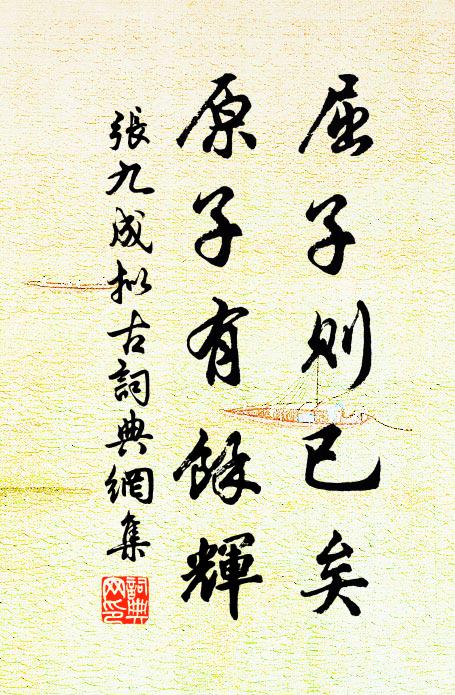 屈子則已矣
原子有餘輝
張九成拟古詞典網集
詞典
网印